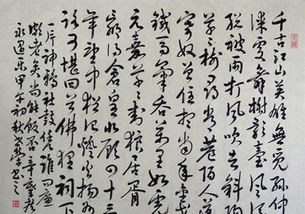 千古江山英雄无觅孙仲
谋处舞榭歌台风流
总被雨打风吹去斜阳
草树寻常巷陌人道
寄奴曾住想当年金戈
铁马气吞万里如虎
元嘉草草封狼居胥
赢得仓皇北顾四十三
年望中犹记烽火扬州
路可堪回首佛狸祠下
一片神鸦社鼓凭谁问廉
颇老矣尚能饭否辛弃疾
永遇乐甲子初秋